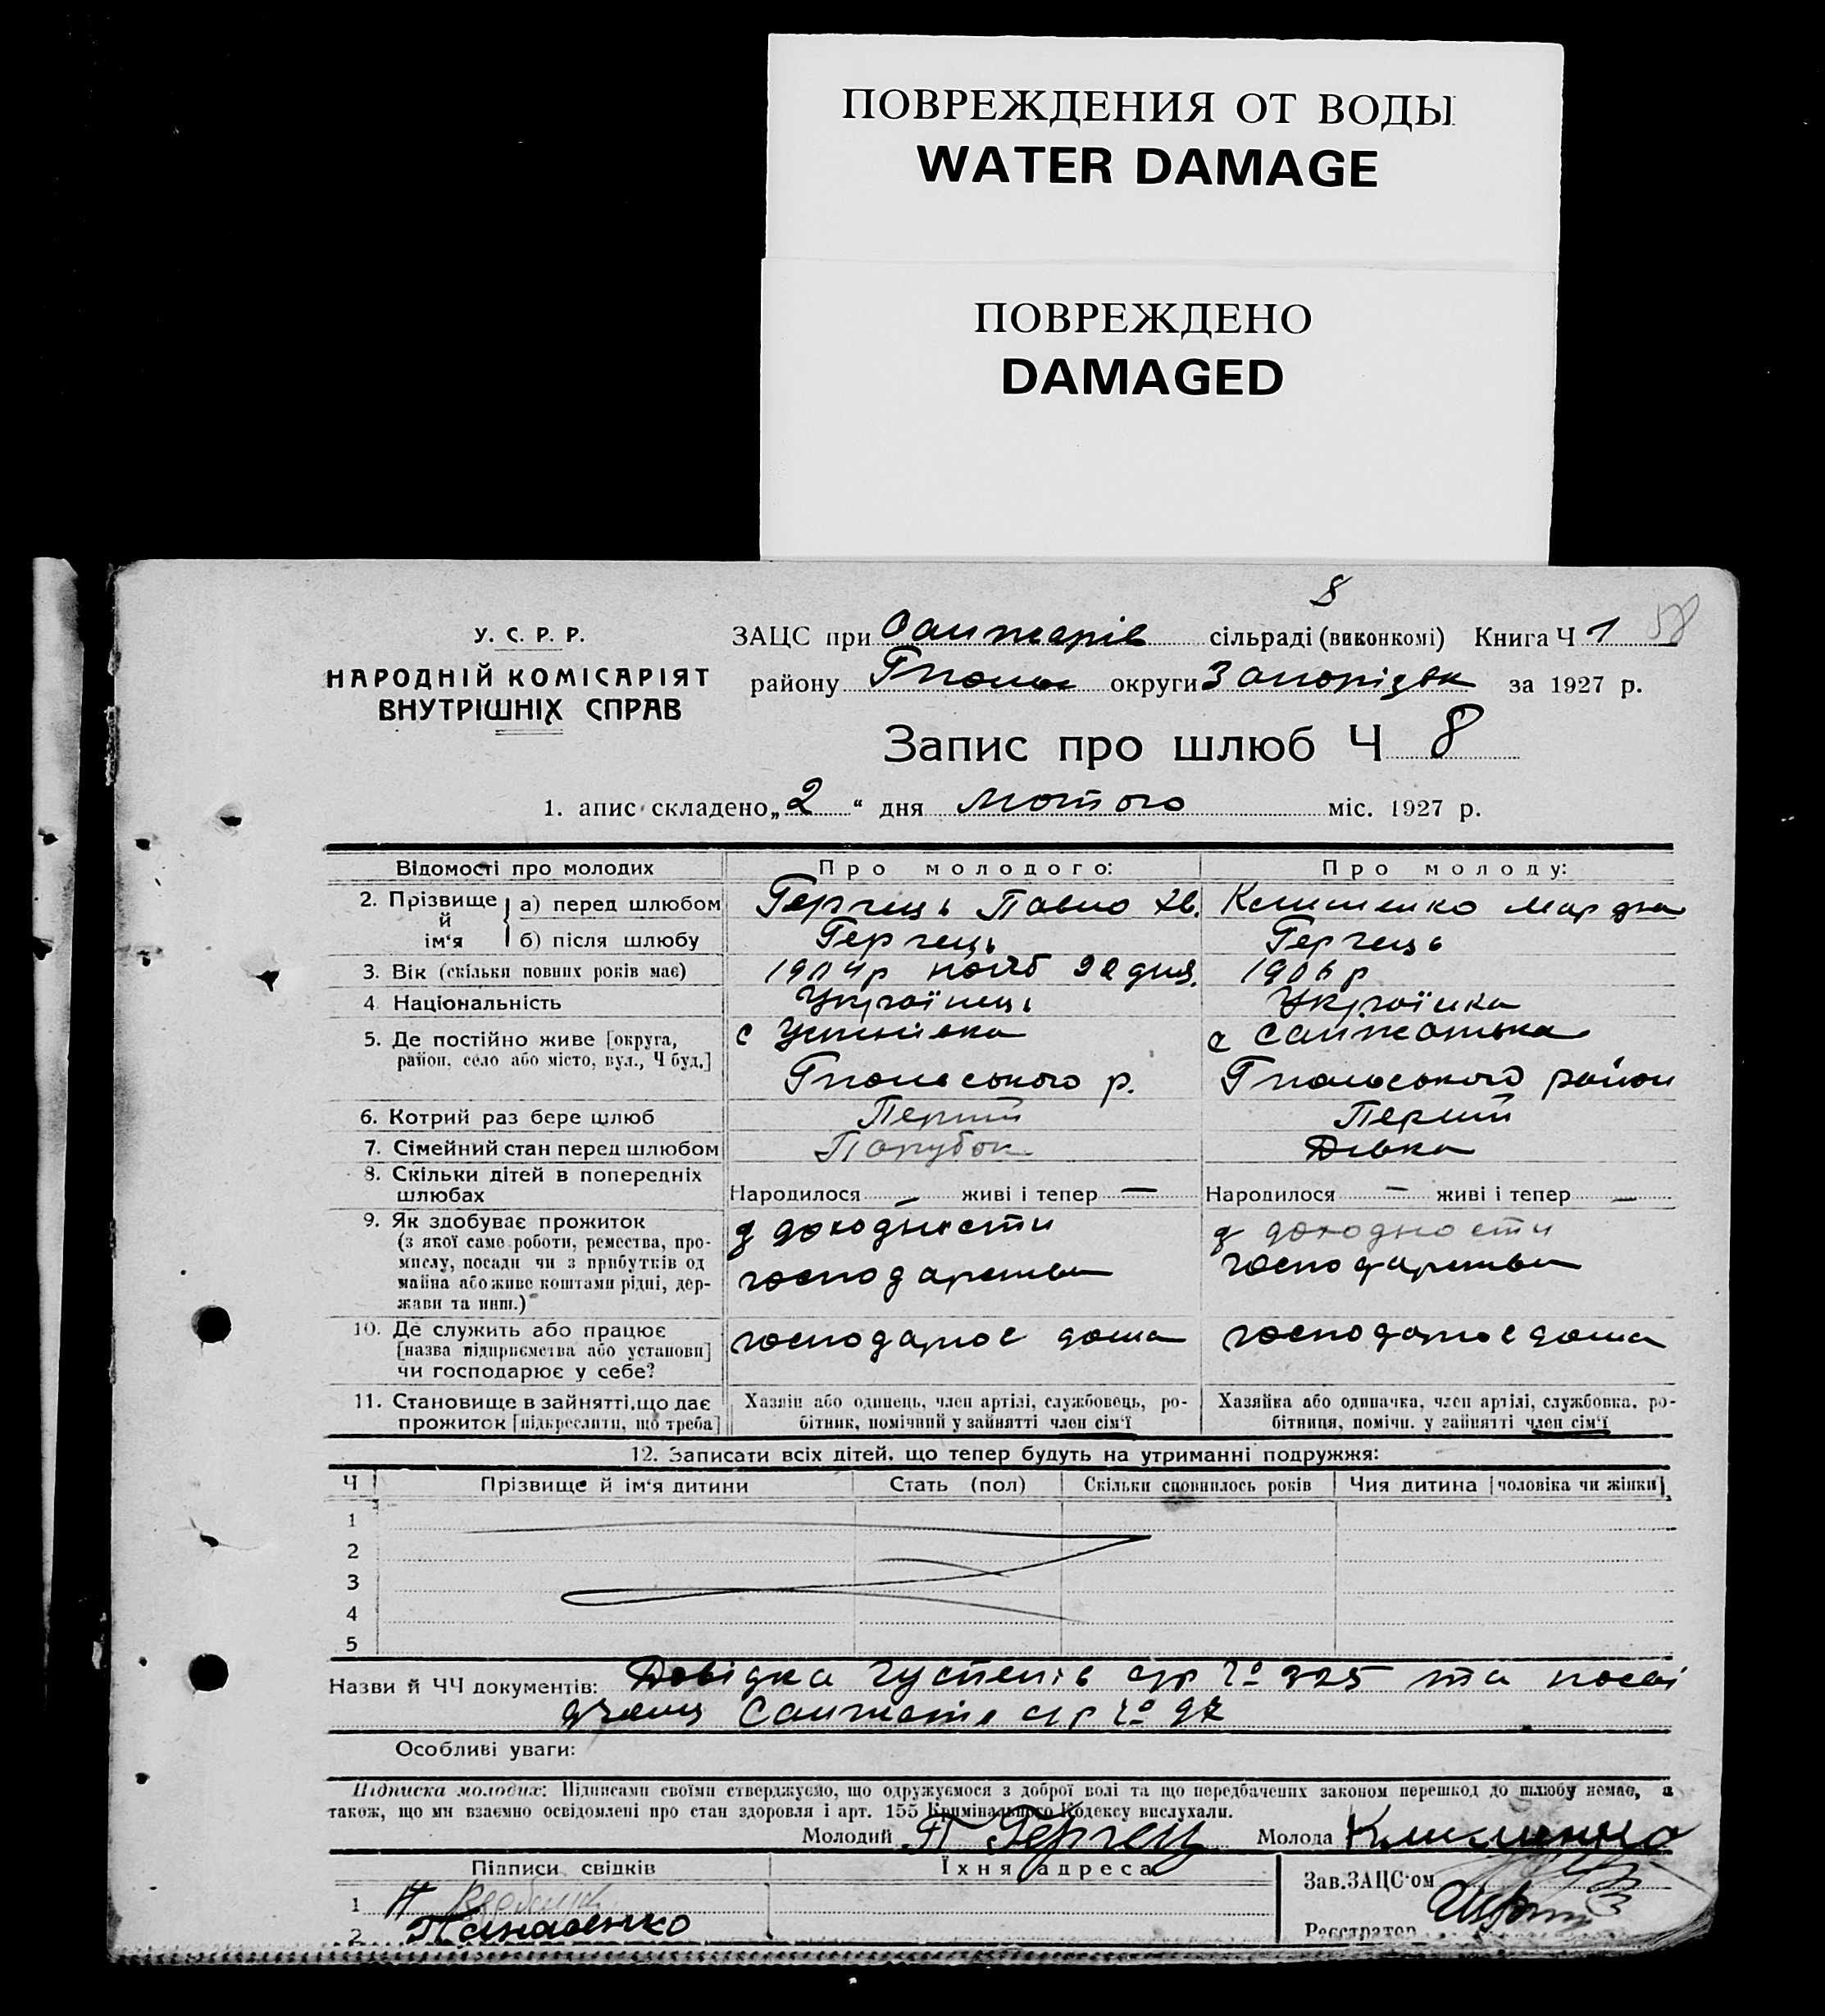 ПОВРЕЖДЕНИЯ ОТ ВОДЫ
WATER DAMAGE
ПОВРЕЖДЕНО
DAMAGED
8
58
У. С. Р. Р.
НАРОДНІЙ КОМІСАРІЯТ
ВНУТРІШНІХ СПРАВ
ЗАЦС при Санжарів сільраді (виконкомі) Книга Ч 1
району округи Запорізьк за 1927 р.
Запис про шлюб Ч 8
1. апис складено „2“ дня лютого міс. 1927 р.
Відомості про молодих Про молодого: Про молоду:
2. Прізвище й ім'я а) перед шлюбом Герчець Павло Хв. Клименко
б) після шлюбу Герчець Герчець
3. Вік (скільки повних років має) 1904р 22 дня 1906 р
4. Національність Українець Українка
5. Де постійно живе [округа, район, село або місто, вул., Ч буд.] с с
р. район
6. Котрий раз бере шлюб Перший Перший
7. Сімейний стан перед шлюбом Парубок Дівка
8. Скільки дітей в попередніх шлюбах Народилося — живі і тепер — Народилося — живі і тепер —
9. Як здобуває прожиток (з якої саме роботи, ремества, промислу, посади чи з прибутків од майна або живе коштами рідні, держави та инш.) з доходности господарства з доходности господарства
10. Де служить або працює [назва підприємства або установи] чи господарює у себе? господарює дома господарює дома
11. Становище в зайнятті, що дає прожиток [підкреслити, що треба] Хазяїн або одинець, член артілі, службовець, робітник, помічний у зайнятті член сім'ї Хазяйка або одиначка, член артілі, службовка, робітниця, помічн. у зайнятті член сім'ї
12. Записати всіх дітей, що тепер будуть на утриманні подружжя:
Ч Прізвище й ім'я дитини Стать (пол) Скільки сповнилось років Чия дитина [чоловіка чи жінки]
1
2
3
4
5
Назви й ЧЧ документів: Довідка с/р № 325 та
с/р №
Особливі уваги:
Підписка молодих: Підписами своїми стверджуємо, що одружуємося з доброї волі та що передбачених законом перешкод до шлюбу немає, а
також, що ми взаємно освідомлені про стан здоровля і арт. 155 Кримінального Кодексу вислухали.
Молодий П Герчець Молода Клименко
Підписи свідків Їхня адреса Зав. ЗАЦС'ом
1
2 Панасенко Реєстратор